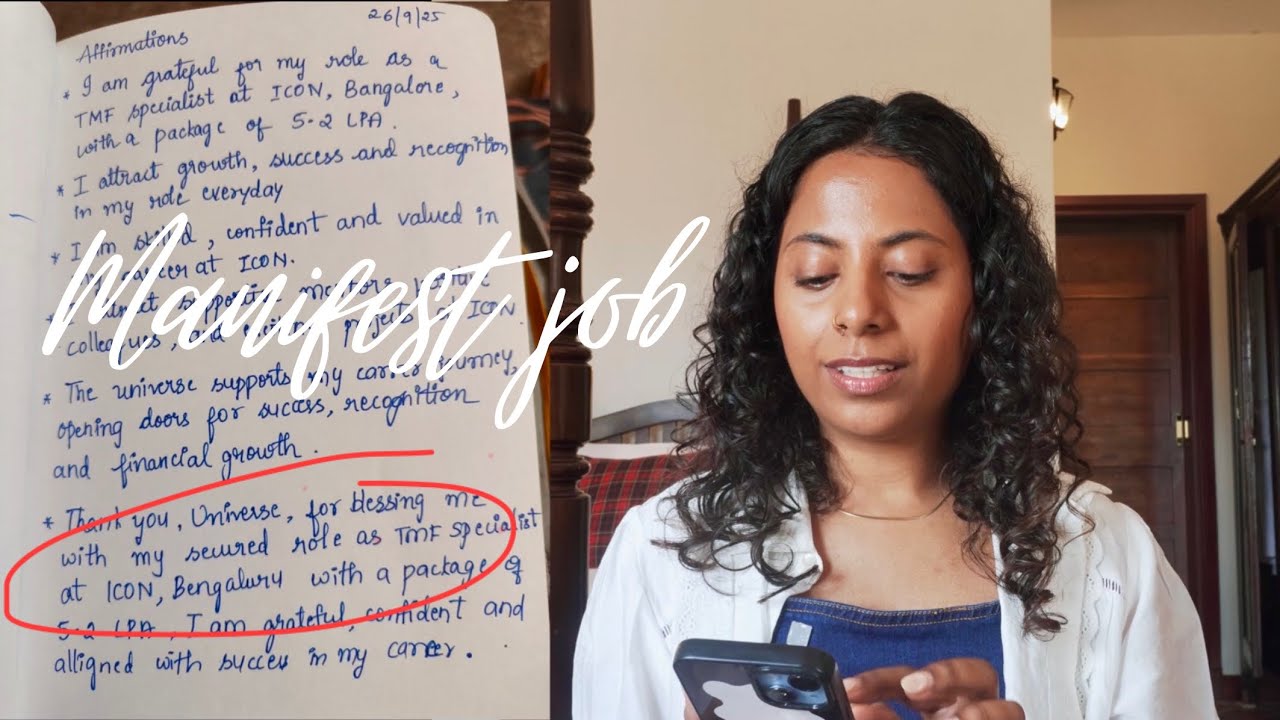 26/9/25
Affirmations
* I am grateful for my role as a
TMF specialist at ICON, Bangalore,
with a package of 5.2 LPA.
* I attract growth, success and recognition
in my role everyday
* I am skilled, confident and valued in
career at ICON.
* I attract supportive mentors, positive
colleagues, and projects at ICON.
* The universe supports my career journey,
opening doors for success, recognition
and financial growth.
* Thank you, Universe, for blessing me
with my secured role as TMF specialist
at ICON, Bengaluru with a package of
5.2 LPA, I am grateful, confident and
alligned with success in my career.
Manifest job